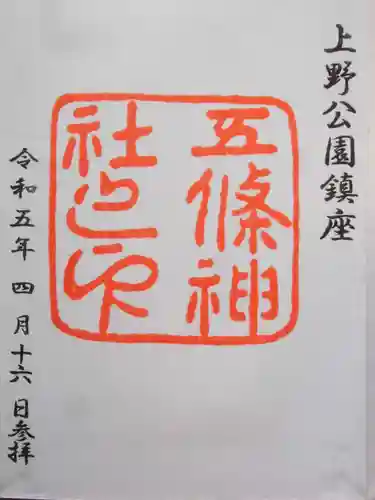 上野公園鎮座
五條神
社之印
令和五年 四月十六日参拝